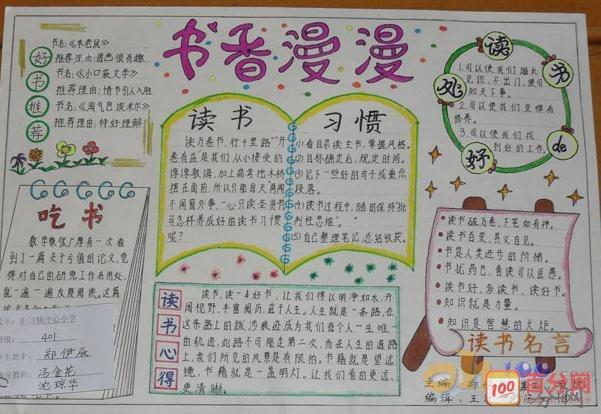 书香漫漫
好书推荐
书名:《木老鼠》
推荐理由:简单很有趣
书名:《小口袋文学》
推荐理由:情节引人入胜
书名:《淘气包埃米尔》
推荐理由:特好理解
读书
读万卷书,行千里路""开
卷有益是我们从小接受的
谆谆教诲,加上高考独木桥
摆在面前,所以只能每天两闻
不闻窗外事,"心只读圣贤书
可怎样养成好的读书习惯
呢?
习惯
①看目录读主书,掌握风格。
②目标确定后,规定时间。
③记下一些好的句子或重点
段落。
④读书过程中,随时保持"批
判性思维"。
⑤自己整理笔记,总结收获。
读书的好处
1.可以使我们增长
见识,不出门,便可
知天下事。
2.可以使我们变得有
修养。
3.可以使我们找
到好的工作。
吃书
数学家张广厚有一次看
到了一篇关于有值的论文,觉
得对自己的研究工作有用处,
就一遍一遍反复阅读。这篇
中心小学
401
郑伊辰
冯金花
沈琼华
读书心得
读书,读一本好书,让我们得以明净如水,开
阔视野,丰富阅历,益于人生。人生就是一条路,在
这条路上的跋涉痕迹成为我们每个人一生唯一
的轨迹,此路不可能走第二次,而在人生的道路
上,我们所见的风景是有限的。书籍就是望远
镜,书籍就是一盏明灯,让我们看的更远、
更清晰。
读书破万卷,下笔如有神。
读书百变,其义自见。
书是人类进步的阶梯。
书犹药也,善读可以医愚。
读书好,多读书,读好书。
知识就是力量。
知识是智慧的火炬。
读书名言
主编:郑
编辑:王
100
百分网